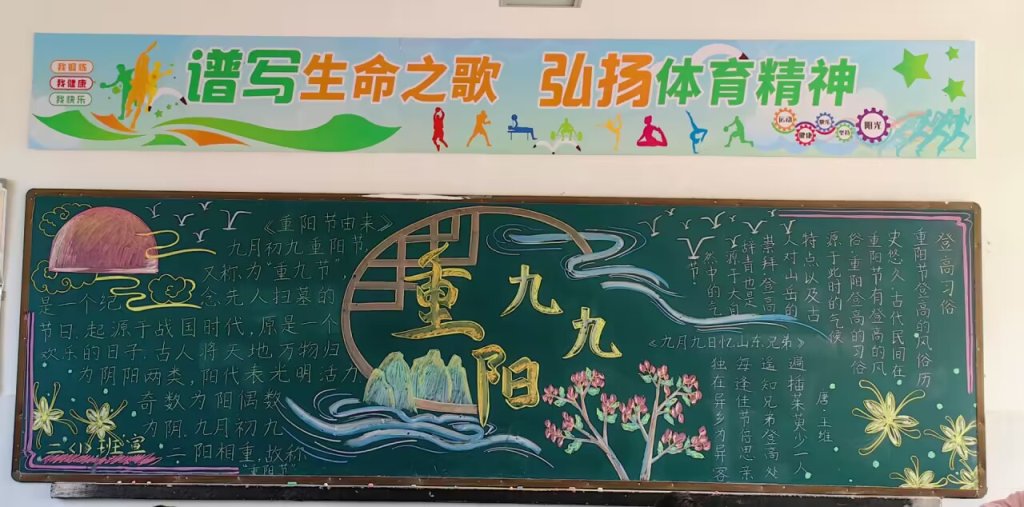 我锻炼
我健康
我快乐
谱写生命之歌 弘扬体育精神
运动
健康
快乐
坚持
阳光
《重阳节由来》
九月初九重阳节,
又称为“重九节”,
是一个纪念先人扫墓的
节日.起源于战国时代,原是一个
欢乐的日子.古人将天地万物归
为阴阳两类,阳代表光明活力
奇数为阳偶数
为阴.九月初九
二阳相重,故称
“重阳节”
二(1)班宣
重阳
九九
登高习俗
重阳节登高的风俗历
史悠久,古代民间在
重阳节有登高的风
俗.重阳登高的习俗
源于此时的气候
特点以及古
人对山岳的
崇拜.登高
辞青也是
源于大自
然中的气
节.
《九月九日忆山东兄弟》
唐·
独在异乡为异客
每逢佳节倍思亲
遥知兄弟登高处
遍插茱萸少一人